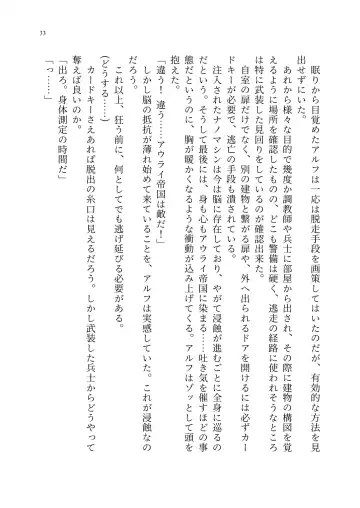 33
眠りから目覚めたアルフは一応は脱走手段を画策してはいたのだが、有効的な方法を見
出せずにいた。
あれから様々な目的で幾度か調教師や兵士に部屋から出され、その際に建物の構図を覚
えるように場所を確認したものの、どこも警備は硬く、逃走の経路に使われそうなところ
は特に武装した見回りをしているのが確認出来た。
自室の扉だけでなく、別の建物と繋がる扉や、外へ出られるドアを開けるには必ずカー
ドキーが必要で、逃亡の手段も潰されている。
注入されたナノマシンは今は脳に存在しており、やがて浸蝕が進むごとに全身に巡るの
だという。そうして最後には、身も心もアウライ帝国に染まる……吐き気を催すほどの事
態だというのに、胸が暖かくなるような衝動が込み上げてくる。アルフはゾッとして頭を
抱えた。
「違う！　違う……アウライ帝国は敵だ！」
しかし脳の抵抗が薄れ始めて来ていることを、アルフは実感していた。これが浸蝕なの
だろう。
これ以上、狂う前に、何としてでも逃げ延びる必要がある。
（どうする……）
カードキーさえあれば脱出の糸口は見えるだろう。しかし武装した兵士からどうやって
奪えば良いのか。
「出ろ。身体測定の時間だ」
「っ……」